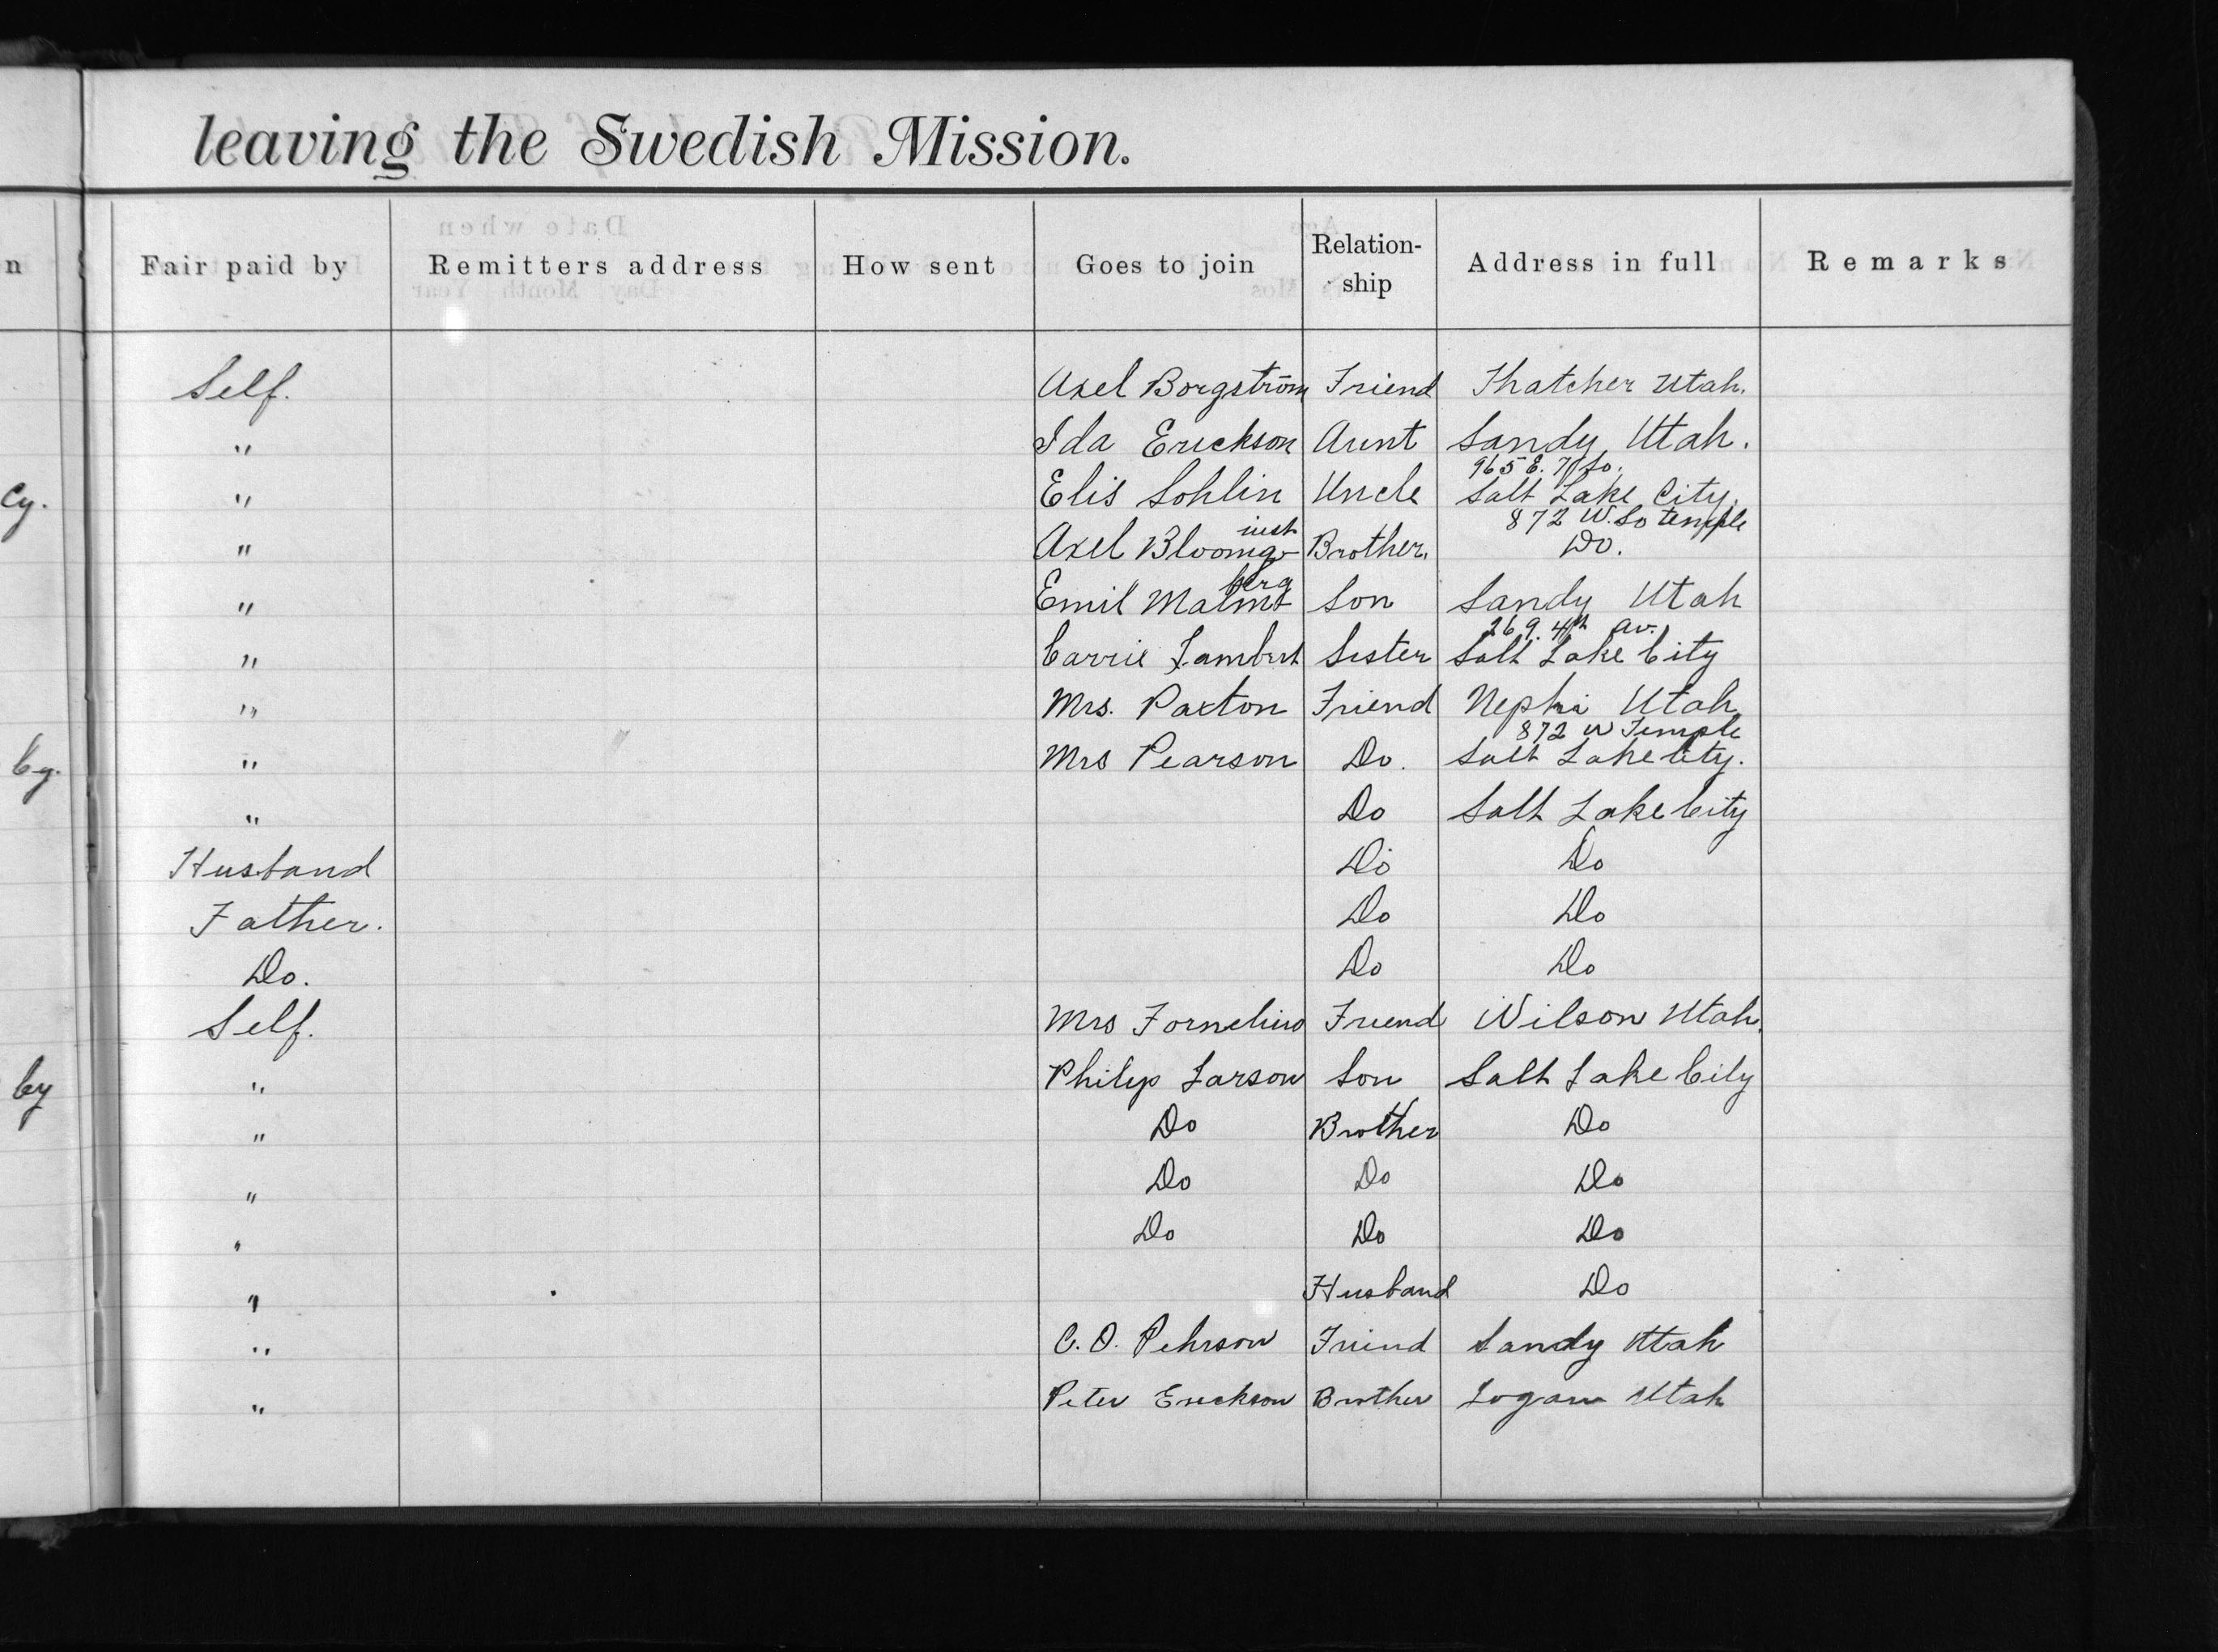 leaving the Swedish Mission.
n Fair paid by Remitters address How sent Goes to join Relation-ship Address in full Remarks
Self. Axel Borgström Friend Thatcher Utah.
" Ida Erickson Aunt Sandy Utah.
965 E. 7 So.
Cy. " Elis Sohlin Uncle Salt Lake City.
872 W. So temple
" Axel Bloomq-uist Brother. Do.
" Emil Malmberg Son Sandy Utah
269. 4th av.
" Carrie Lambert Sister Salt Lake City
" Mrs. Paxton Friend Nephi Utah
872 W Temple
Cy. " Mrs Pearson Do. Salt Lake City.
" Do Salt Lake City
Husband Do Do
Father. Do Do
Do. Do Do
Self. Mrs Fornelius Friend Wilson Utah.
Cy " Philip Larson Son Salt Lake City
" Do Brother Do
" Do Do Do
" Do Do Do
" Husband Do
" C. O. Pehrson Friend Sandy Utah
" Peter Erickson Brother Logan Utah